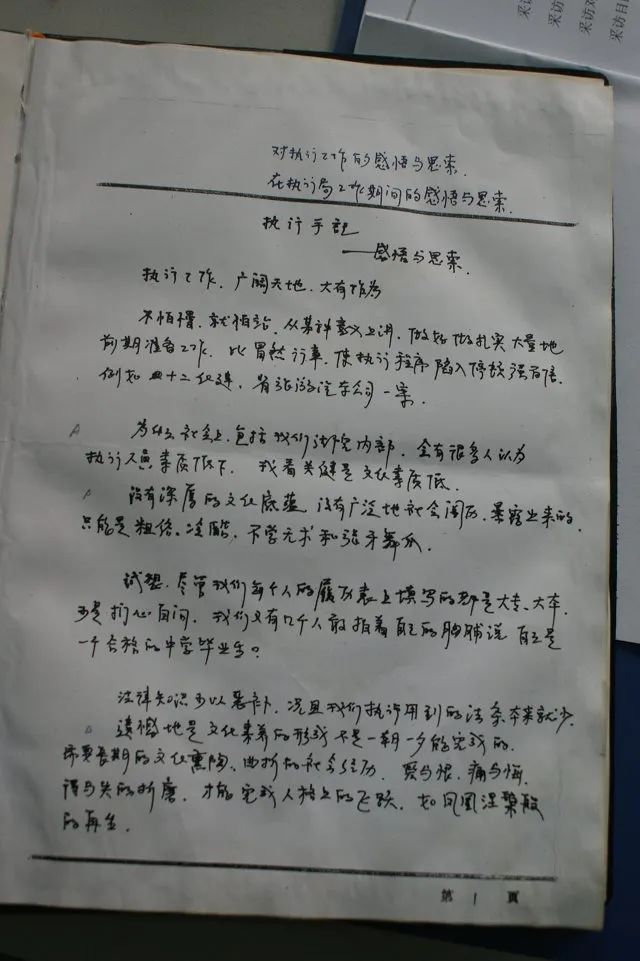 采访
采访
采访对
采访日
对执行工作的感悟与思索.
在执行局工作期间的感悟与思索.
执行手记
——感悟与思索.
执行工作、广阔天地、大有作为
不怕慢、就怕站、从某种意义上讲、做好做扎实大量地
前期准备工作、比冒然行事、使执行程序陷入停顿强百倍.
例如 四十二 省旅游汽车公司一案.
为什么社会上、包括我们法院内部、会有很多人认为
执行人员素质低下、我看关键是文化素质低.
没有深厚的文化底蕴、没有广泛地社会阅历、暴露出来的
只能是粗俗、冷酷、不学无术和张牙舞爪.
试想、尽管我们每个人的履历表上填写的都是大专、大本、
可是扪心自问、我们又有几个人敢拍着自己的胸脯说自己是
一个合格的中学毕业生?
法律知识可以恶补、况且我们执行用到的法条本来就少
遗憾地是文化素养的形成不是一朝一夕能完成的.
需要长期的文化熏陶、曲折的社会经历、爱与恨、痛与悔、
得与失的折磨、才能完成人格上的飞跃、如凤凰涅槃般
的再生.
第 1 頁